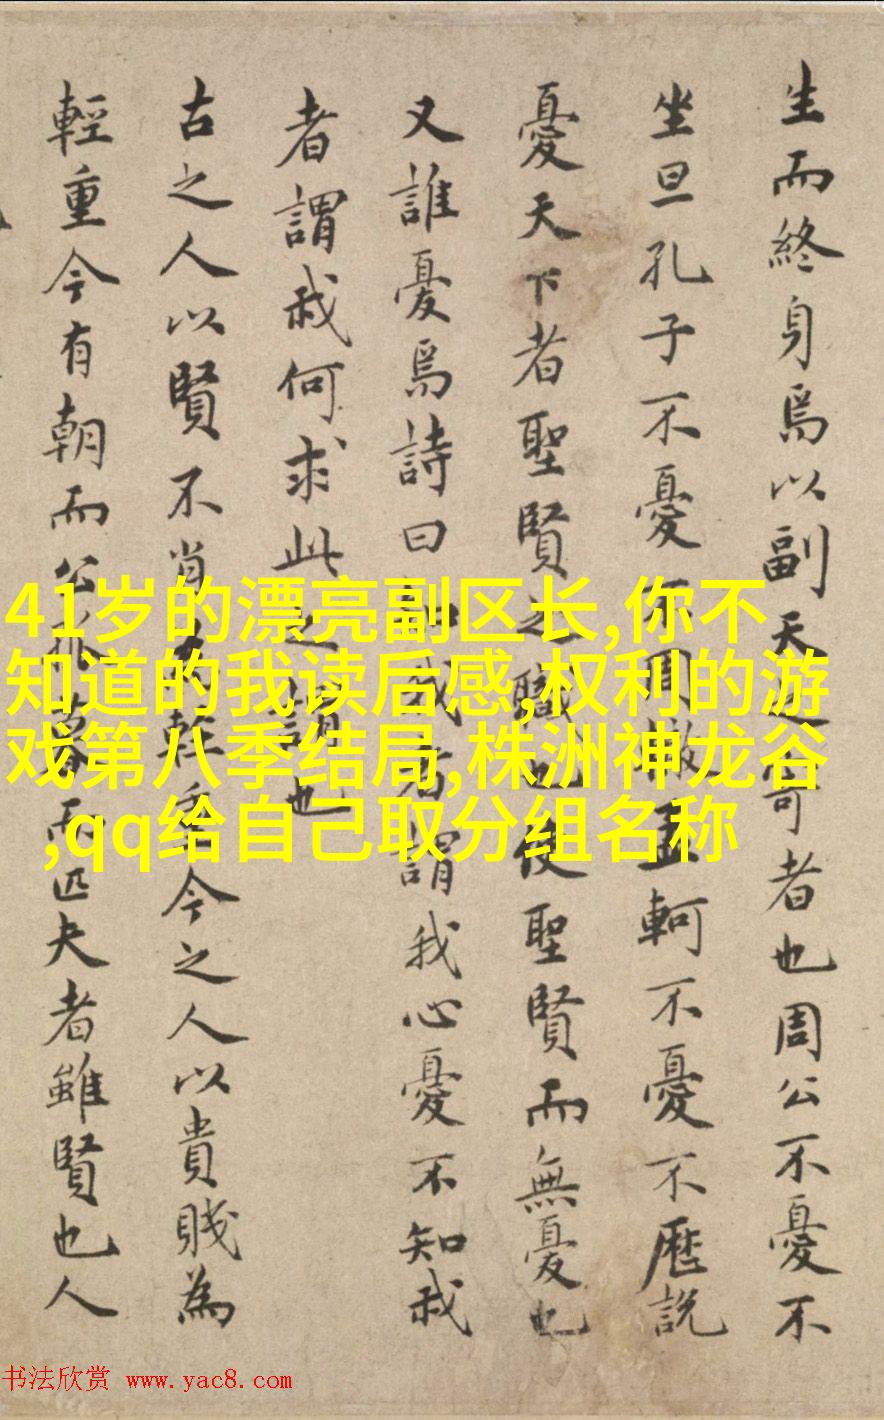 生而終身焉以副天之寄者也周公不憂不
坐旦孔子不憂不周轍孟軻不憂不歷說
憂天下者聖賢之職也使聖賢而無憂也
又誰憂焉詩曰知我者謂我心憂不知我
者謂我何求此之謂也
古之人以賢不肖為輕重今之人以貴賤為
輕重今有朝而公孤暮而匹夫者雖賢也人
41岁的漂亮副区长,你不
知道的我读后感,权利的游
戏第八季结局,株洲神龙谷
,qq给自己取分组名称
书法欣赏 www.yac8.com